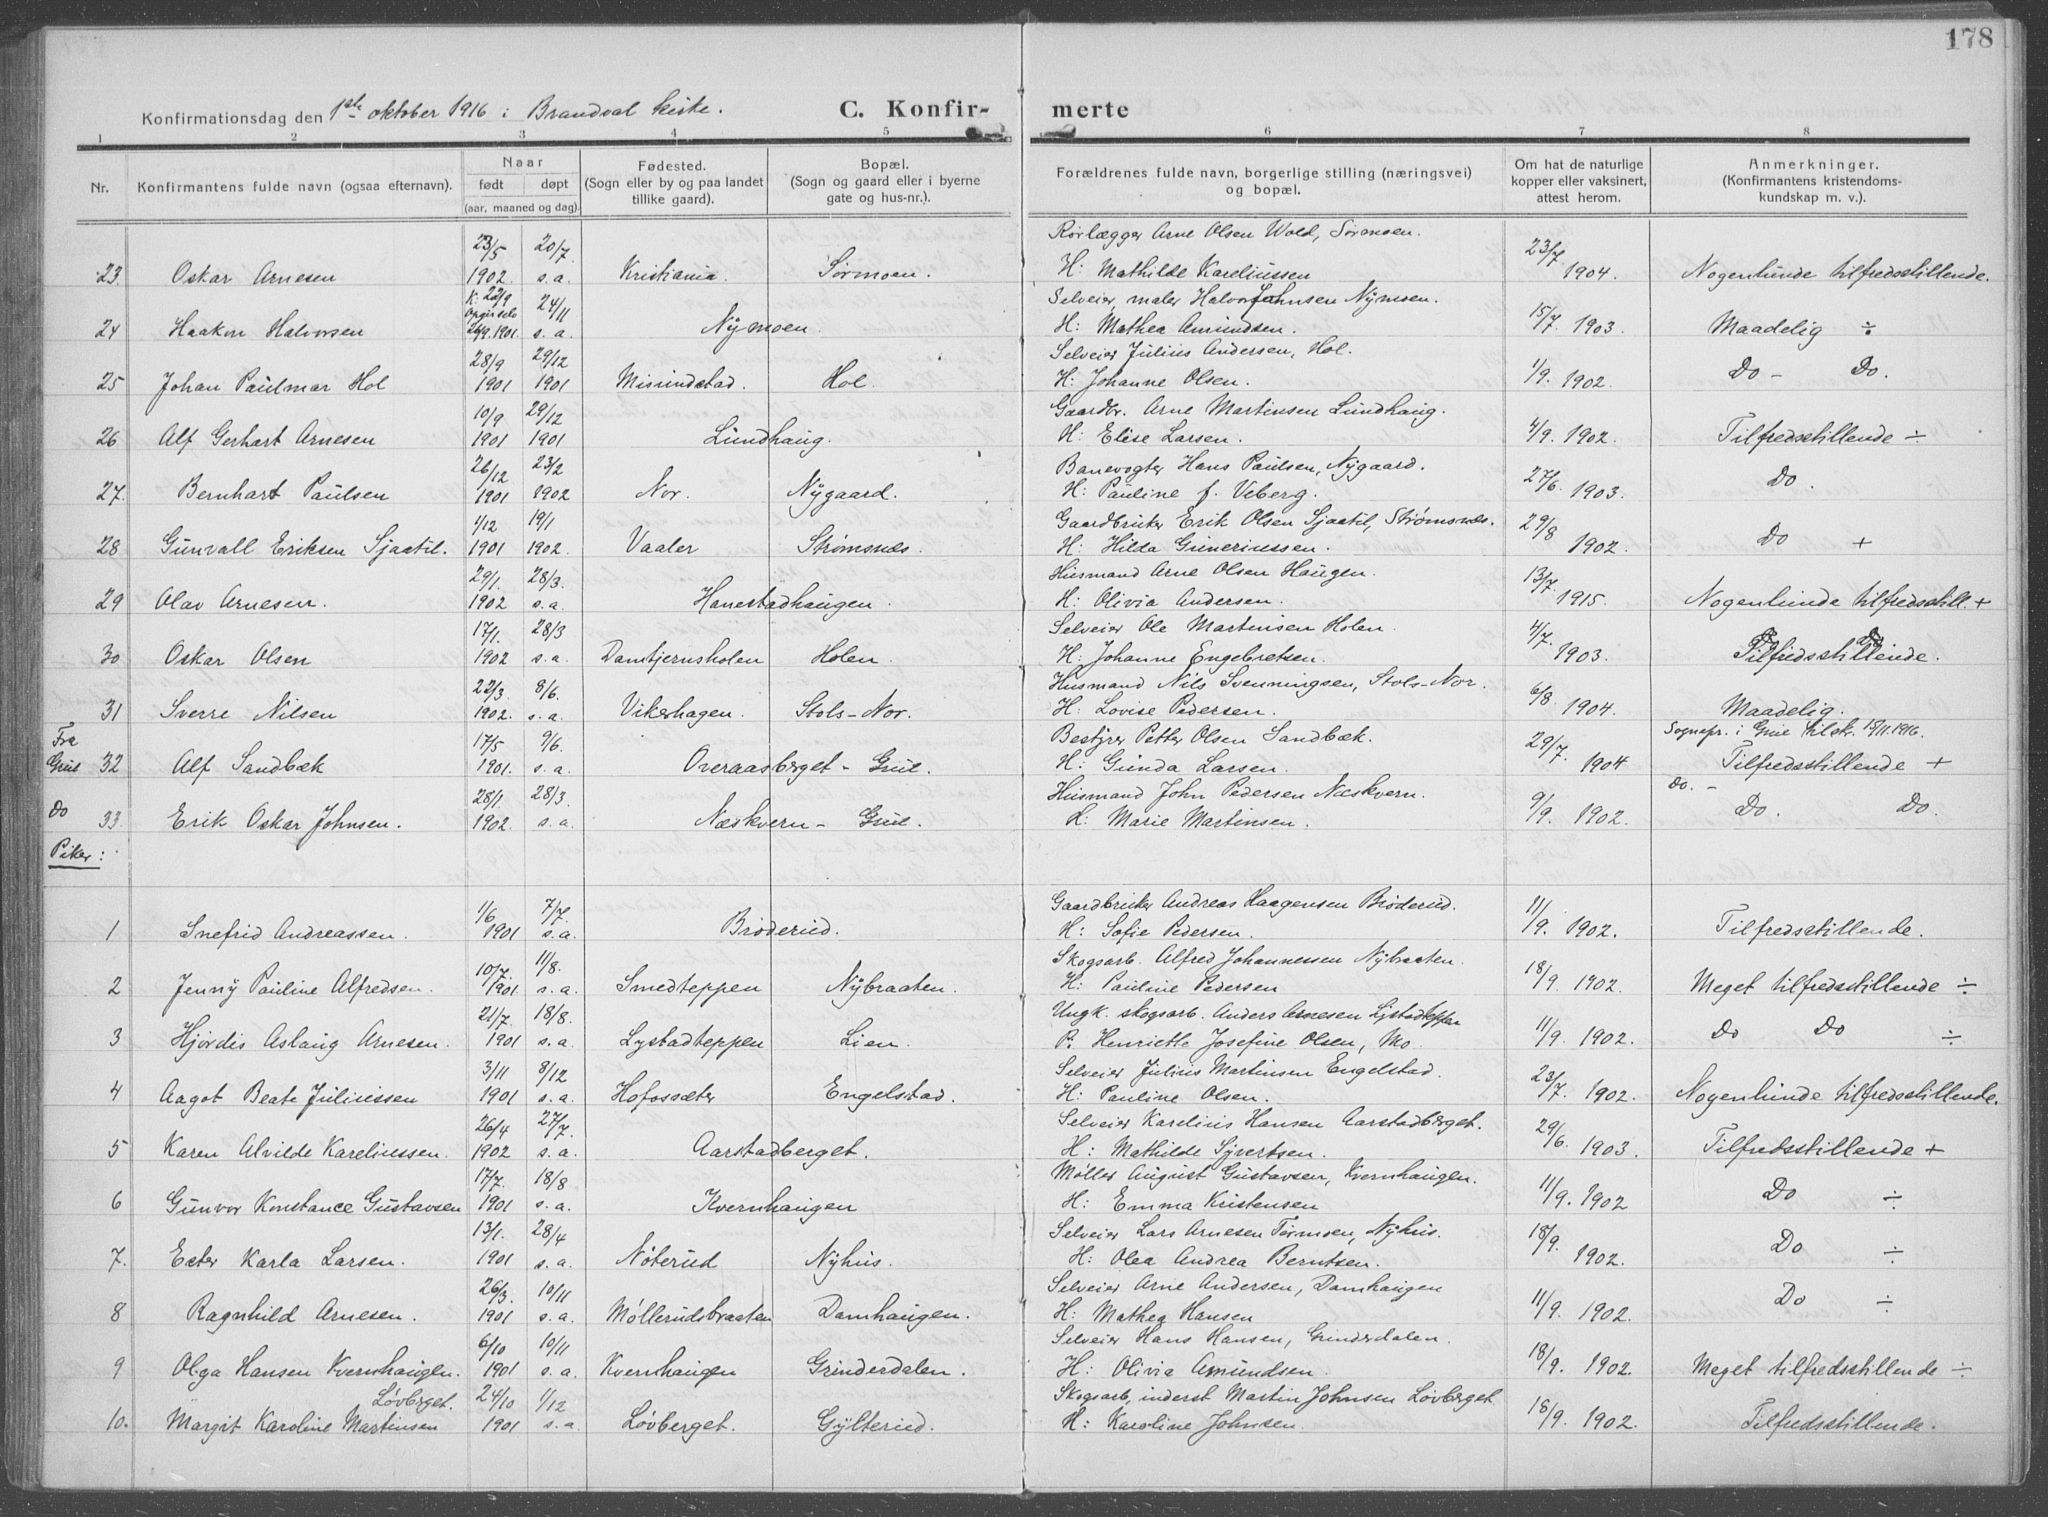 178
Konfirmationsdag den 1ste oktober 1916 i Brandval kirke. C. Konfirmerte
1 2 3 4 5 6 7 8
Nr. Konfirmantens fulde navn (ogsaa efternavn). Naar født døpt (aar, maaned og dag). Fødested. (Sogn eller by og paa landet tillike gaard). Bopæl. (Sogn og gaard eller i byerne gate og hus-nr.). Forældrenes fulde navn, borgerlige stilling (næringsvei) og bopæl. Om hat de naturlige kopper eller vaksinert, attest herom. Anmerkninger. (Konfirmantens kristendoms- kundskap m. v.).
23/5 20/7 Rørlægger Arne Olsen Wold, Sørmoen. 23/7
23. Oskar Arnesen 1902. s. a. Kristiania. Sørmoen. H: Mathilde Kareliussen 1904. Nogenlunde tilfredsstillende.
K: 22/9 opgir selv 24/11 Selveier maler Halvor Johnsen Nymoen.
24 Haakon Halvorsen 26/9. 1901 s. a. Nymoen. H: Mathea Amundsen. 15/7. 1903. Maadelig ÷
28/9 29/12 Selveier Julius Andersen, Hol.
25 Johan Paulmar Hol 1901 1901 Hol. H: Johanne Olsen. 1/9. 1902. Do - Do.
10/9 29/12 Gaardbr. Arne Martinsen Lundhaug.
26 Alf Gerhart Arnesen 1901 1901 Lundhaug. H: Elise Larsen. 4/9. 1902. Tilfredsstillende ÷
26/12 23/2 Banevogter Hans Paulsen, Nygaard.
27. Bernhart Paulsen 1901 1902 Nor. Nygaard. H: Pauline f. Veberg. 27/6. 1903. Do.
4/12 19/1 Gaardbruker Erik Olsen Sjaatil, Strømsnæs. 29/8
28 Gunvall Eriksen Sjaatil. 1901 1902. Vaaler Strømsnæs. H: Hilda Guneriussen. 1902. Do +
29/1. 28/3. Husmand Arne Olsen Haugen. 13/7.
29 Olav Arnesen. 1902 s. a. Hanestadhaugen. H: Olivia Andersen. 1915. Nogenlunde tilfredsstill. +
17/1. 28/3 Selveier Ole Martinsen Holen. 4/7.
30 Oskar Olsen 1902 s. a. Damtjernsholen Holen. H: Johanne Engebretsen. 1903. Tilfredsstillende.
22/3. 8/6. Husmand Nils Svenningsen, Stols-Nor. 6/8.
31 Sverre Nilsen 1902. s. a. Vikerhagen. Stols-Nor. H: Lovise Pedersen. 1904. Maadelig.
Fra Grue 17/5 9/6. Bestyrer Petter Olsen Sandbæk. 29/7. Sognepr. i Grue tilsk. 15/11. 1916.
32 Alf Sandbæk 1901. s. a. Overaasberget - Grue. H: Gunda Larsen. 1904 Tilfredsstillende +
Do 28/1. 28/3. Husmand John Pedersen Næskvern. Do. -
33. Erik Oskar Johnsen. 1902. s. a. Næskvern - Grue. H: Marie Martinsen. 9/9. 1902. Do. Do.
Piker:
1/6 7/7. Gaardbruker Andreas Haagensen Brøderud.
1 Snefrid Andreassen. 1901 s. a. Brøderud. H: Sofie Pedersen. 11/9. 1902. Tilfredsstillende.
10/7. 11/8. Skogsarb. Alfred Johannessen Nybraaten.
2 Jenny Pauline Alfredsen. 1901. s. a. Smedteppen Nybraaten. H: Pauline Pedersen 18/9. 1902. Meget tilfredsstillende ÷
21/7. 18/8. Ungk. skogsarb. Anders Arnesen Lystadteppen
3 Hjørdis Aslaug Arnesen. 1901 s. a. Lystadteppen Lien. P. Henriette Josefine Olsen, Mo. 11/9. 1902. Do Do ÷
3/11 8/12 Selveier Julius Martinsen Engelstad.
4 Aagot Beate Juliussen 1901 s. a. Hofossæter Engelstad. H: Pauline Olsen. 23/7. 1902. Nogenlunde tilfredsstillende.
26/4 27/7. Selveier Karelius Hansen Aarstadberget.
5 Karen Alvilde Kareliussen. 1902 s. a. Aarstadberget. H: Mathilde Syvertsen. 29/6. 1903. Tilfredsstillende +
17/7. 18/8 Møller August Gustavsen, Kvernhaugen.
6 Gunvor Konstance Gustavsen 1901 s. a. Kvernhaugen H: Emma Kristensen 11/9. 1902 Do ÷
13/1. 28/4 Selveier Lars Arnesen Tormoen, Nyhus. 18/9.
7. Ester Karla Larsen. 1901 s. a. Nøterud Nyhus. H: Olea Andrea Berntsen. 1902. Do ÷
26/3. 10/11 Selveier Arne Andersen, Damhaugen
8 Ragnhild Arnesen. 1901 s. a. Møllerudsbraaten Damhaugen. H: Mathea Hansen 11/9. 1902. Do ÷
6/10 10/11 Selveier Hans Hansen, Grinderdalen.
9 Olga Hansen Kvernhaugen. 1901 s. a. Kvernhaugen Grinderdalen. H: Olivia Amundsen. 18/9. 1902. Meget tilfredsstillende ÷
Løvberget. 24/10 1/12 Skogsarb, inderst Martin Johnsen Løvberget
10. Margit Karoline Martinsen 1901 s. a. Løvberget. Gylterud. H: Karoline Johnsen. 18/9. 1902. Tilfredsstillende.